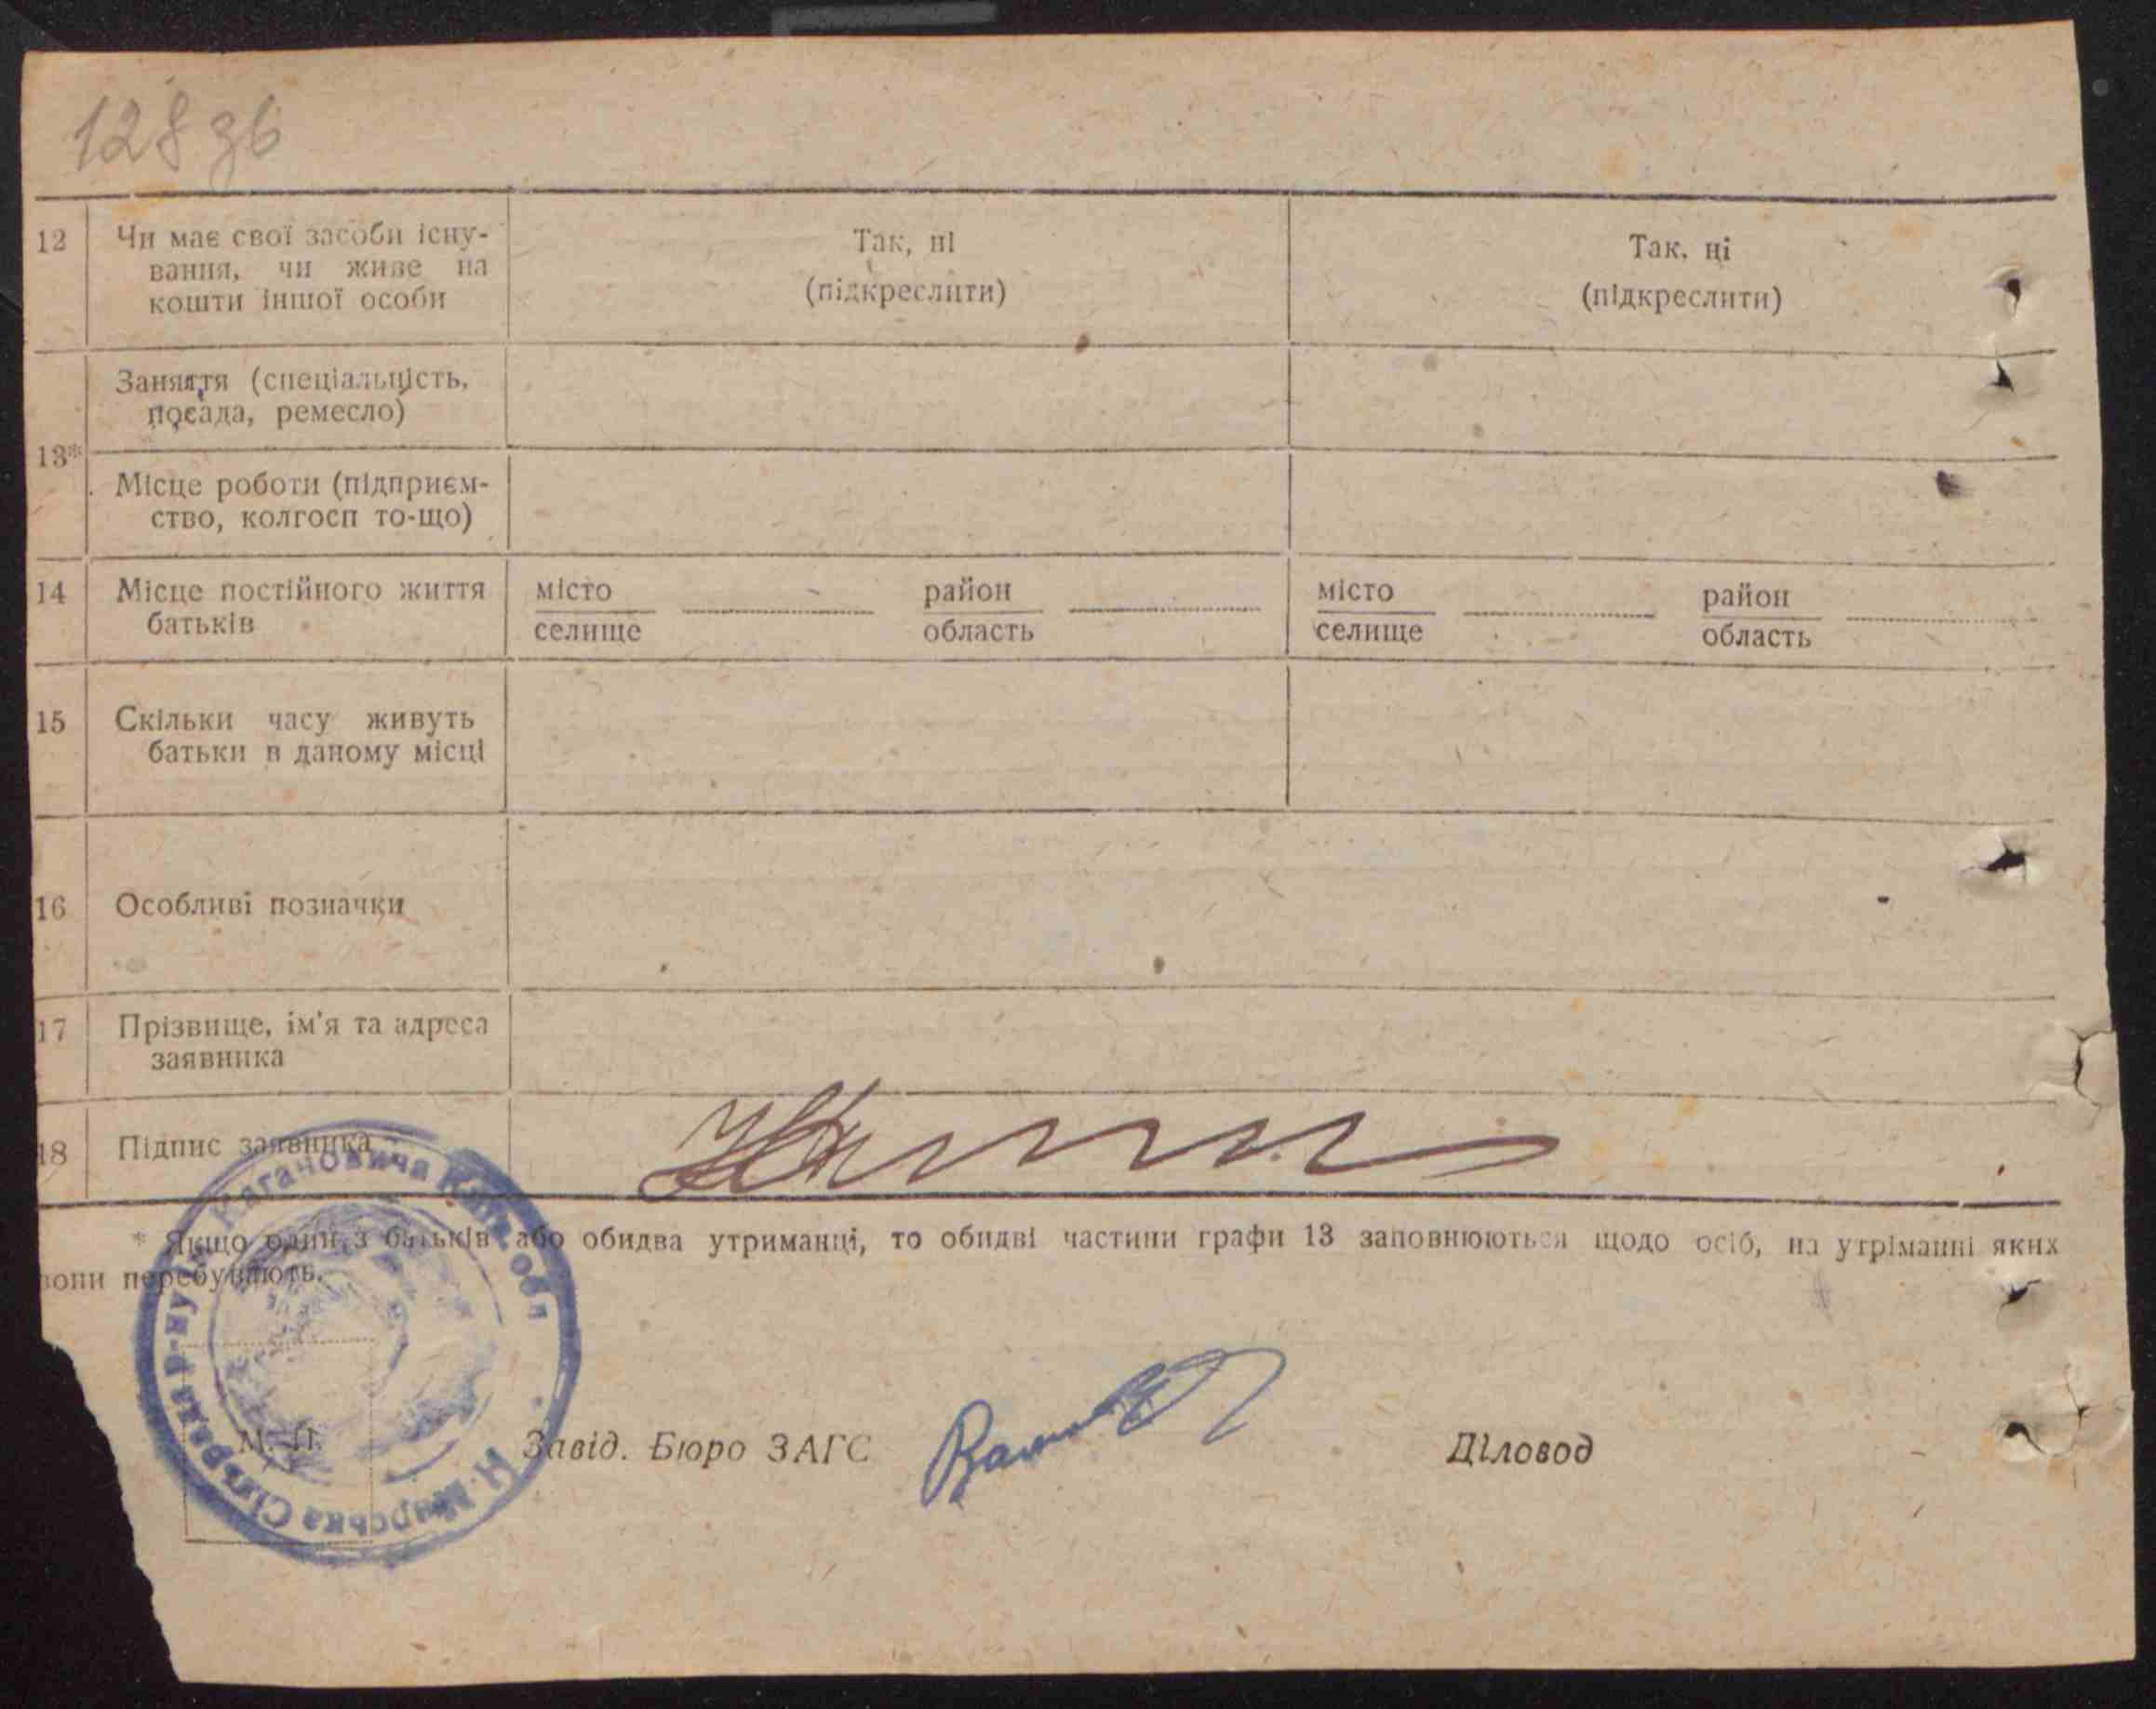 128 зв
12 Чи має свої засоби існу-
вання, чи живе на
кошти іншої особи
Так, ні
(підкреслити)
Так, ні
(підкреслити)
13*
Заняття (спеціальність,
посада, ремесло)
Місце роботи (підприєм-
ство, колгосп то-що)
14 Місце постійного життя
батьків
місто
селище
район
область
місто
селище
район
область
15 Скільки часу живуть
батьки в даному місці
16 Особливі позначки
17 Прізвище, ім'я та адреса
заявника
18 Підпис заявника
* Якщо один з батьків або обидва утриманці, то обидві частини графи 13 заповнюються щодо осіб, на утріманні яких
вони перебувають.
Сільрада р-ну ім. Кагановича Київ. обл
М. П.
Завід. Бюро ЗАГС
Діловод